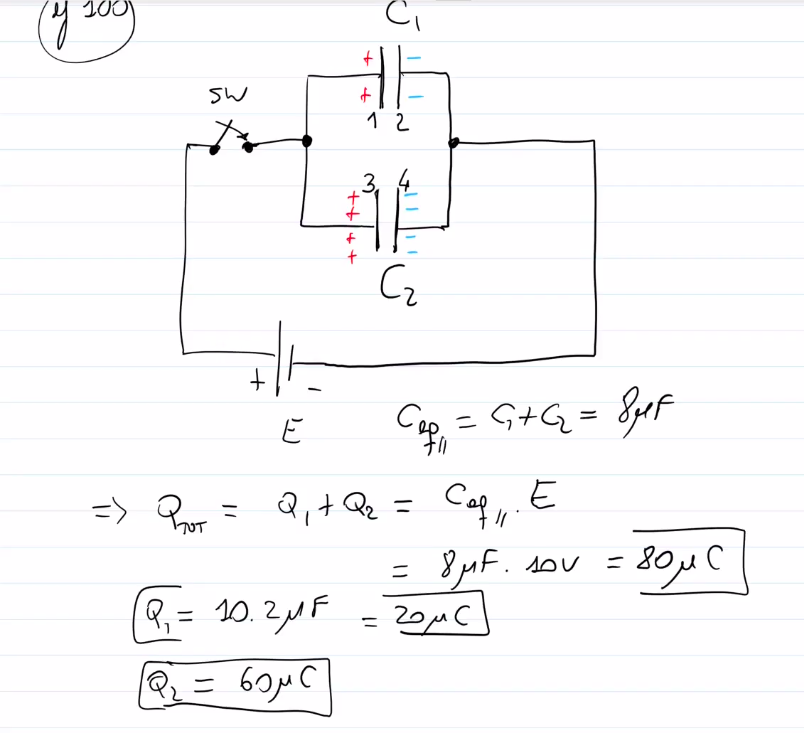 y 100
C₁
+ −
SW
+ −
1 2
3 4
+ −
+ −
+ −
+ −
C₂
+ −
E
Ceq// = C₁+C₂ = 8μF
=> QTOT = Q₁ + Q₂ = Ceq// . E
= 8μF. 10V = 80μC
Q₁ = 10.2μF = 20μC
Q₂ = 60μC